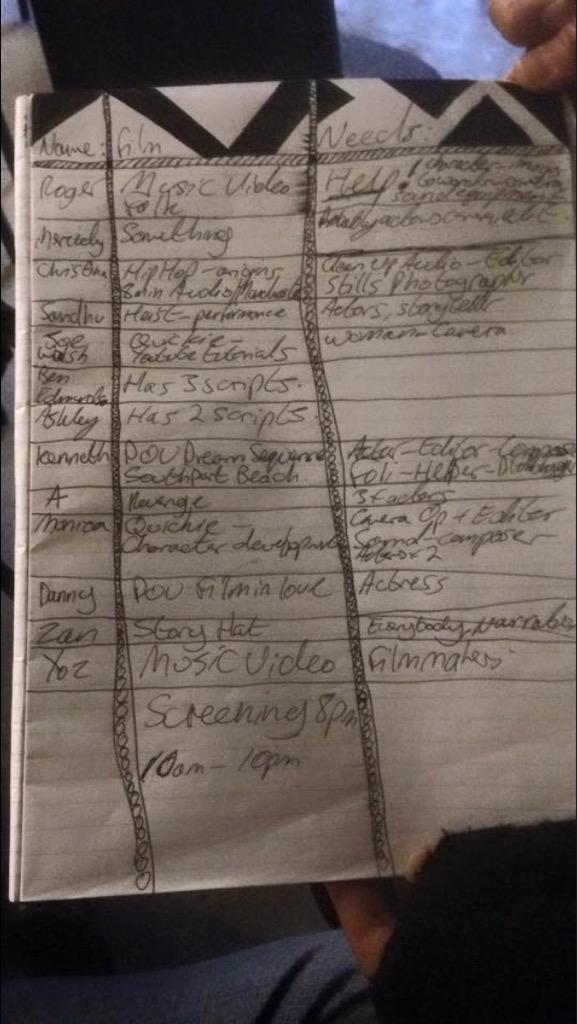 Name: Film Needs:
Roger Music Video Help! character
Folk sound equipment
Something
Christina HipHop - origins Clean Up Audio - Editor
8min Audio/ Stills Photographer
Sandhu Heist - performance Actors, storyteller
Joe Quickie - woman - Camera
Walsh Youtube tutorials
Ben Has 3 scripts.
Edmunds
Ashley Has 2 scripts.
Kenneth POV Dream Sequence Actor - Editor - Compose
Southport Beach. Foli - Helper -
A Revenge 3 + actors
Monica Quickie - Camera Op + Editor
Character development Sound - composer -
Actor x 2
Danny POV Film in love Actress
Zan Story Hat Everybody, Narrator
Yoz Music Video Filmmakers
Screening 8pm
10am - 10pm